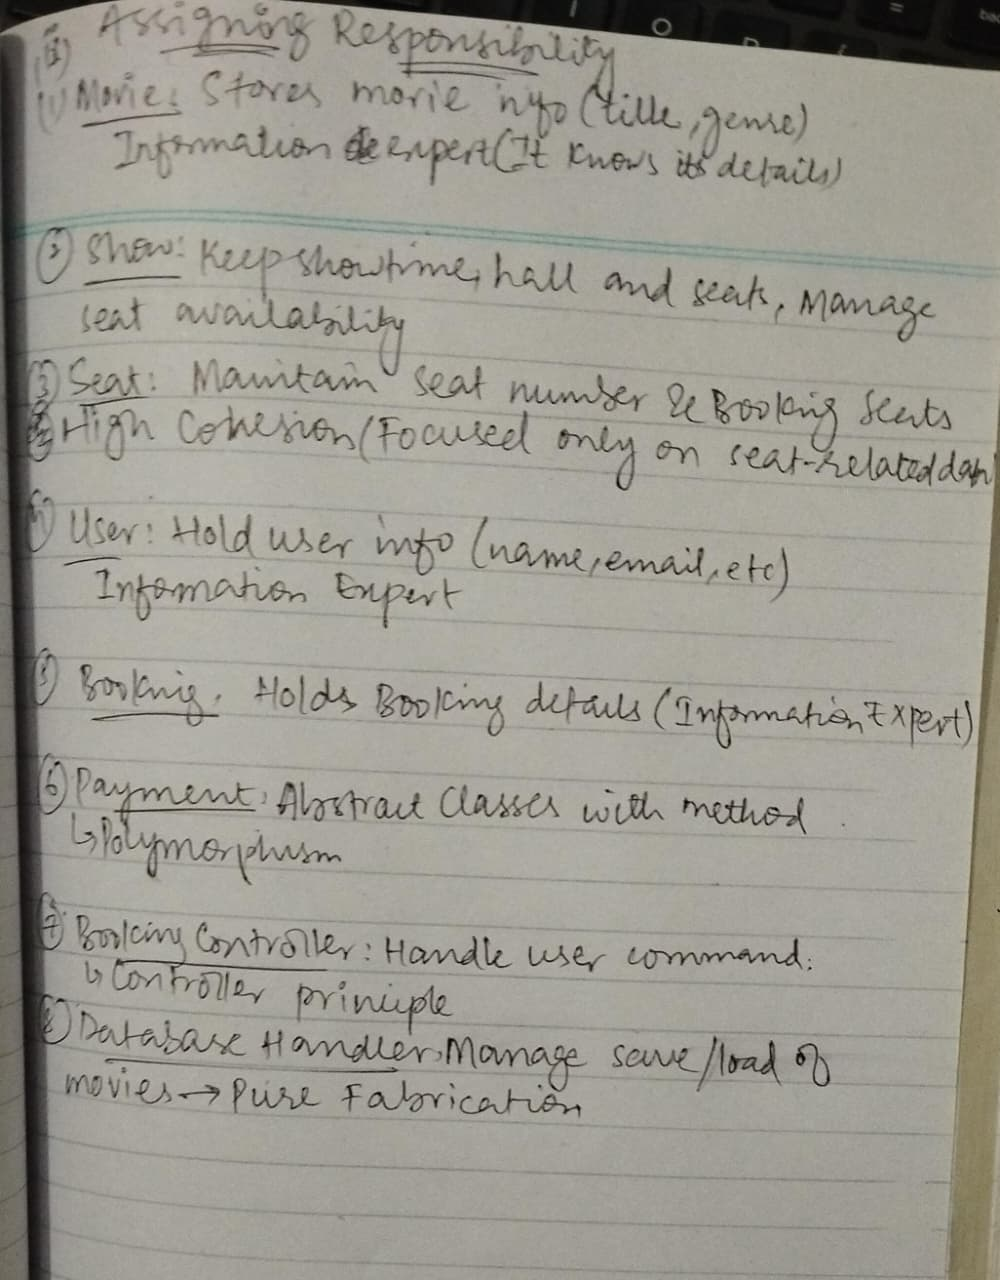 Assigning Responsibility
(1) Movie: Stores movie info (title, genre)
Information expert (It knows its details)
② Show: Keep showtime, hall and seats, Manage
seat availability
③ Seat: Maintain seat number & Booking Seats
High Cohesion (Focused only on seat-related
④ User: Hold user info (name, email, etc)
Infomation Expert
⑤ Booking. Holds Booking details (Information Expert)
⑥ Payment: Abstract Classes with method.
↳ Polymorphism
⑦ Booking Controller: Handle user command.
↳ Controller principle
⑧ Database Handler: Manage save/load of
movies → Pure Fabrication